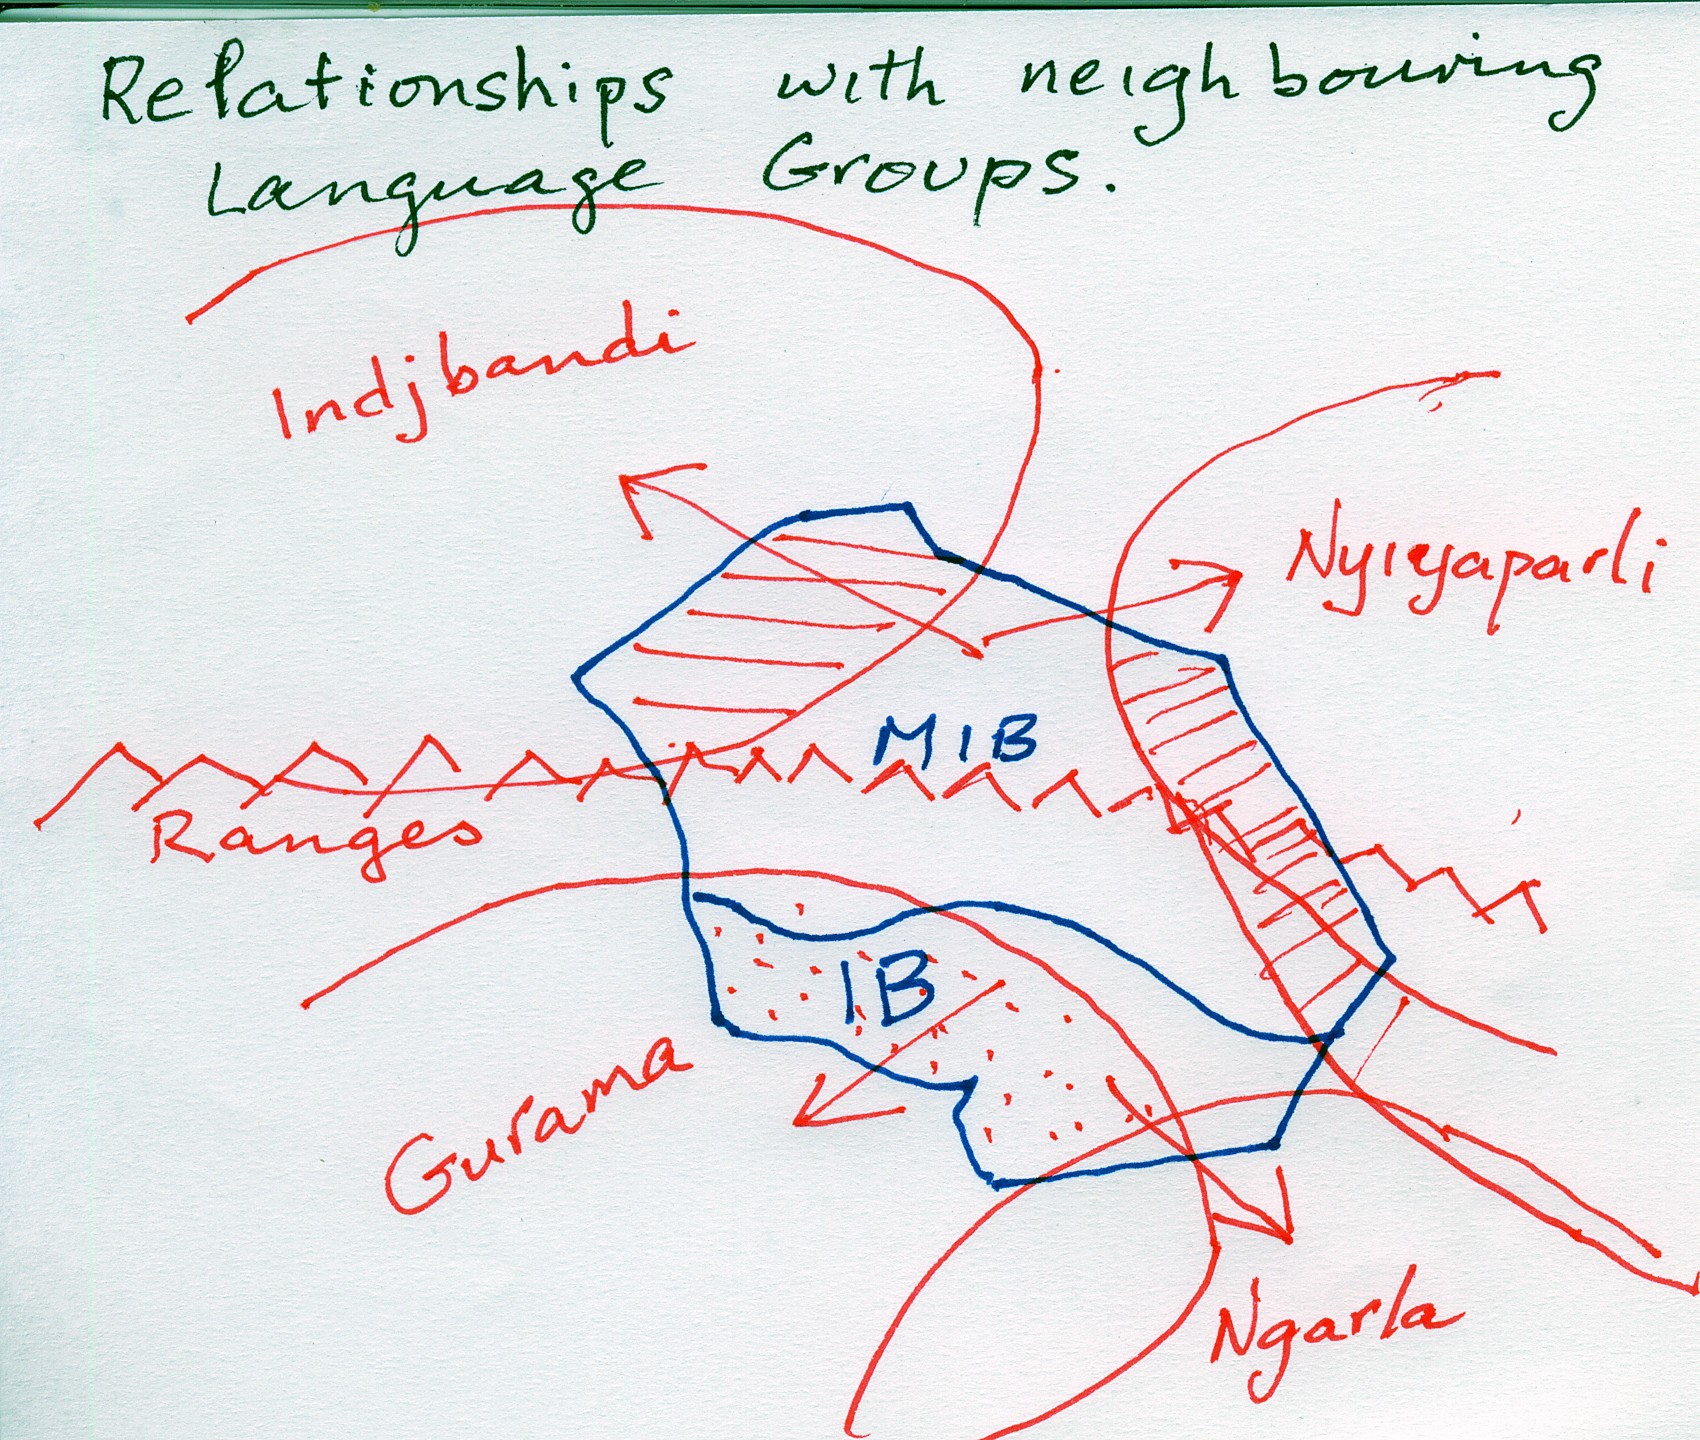 Relationships with neighbouring
Language Groups.
Indjbandi
Nyiyaparli
MIB
Ranges
IB
Gurama
Ngarla